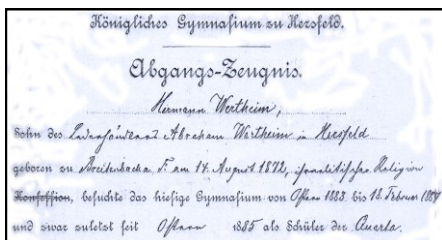 Königliches Gymnasium zu Hersfeld.
Abgangs-Zeugnis.
Hermann Wertheim,
Sohn des Lederhändlers Abraham Wertheim in Hersfeld
geboren zu Breitenbach a. F. am 14. August 1872, israelitischer Religion
Konfession, besuchte das hiesige Gymnasium von Ostern 1883 bis 12. Februar
und zwar zuletzt seit Ostern 1885 als Schüler der Quarta.